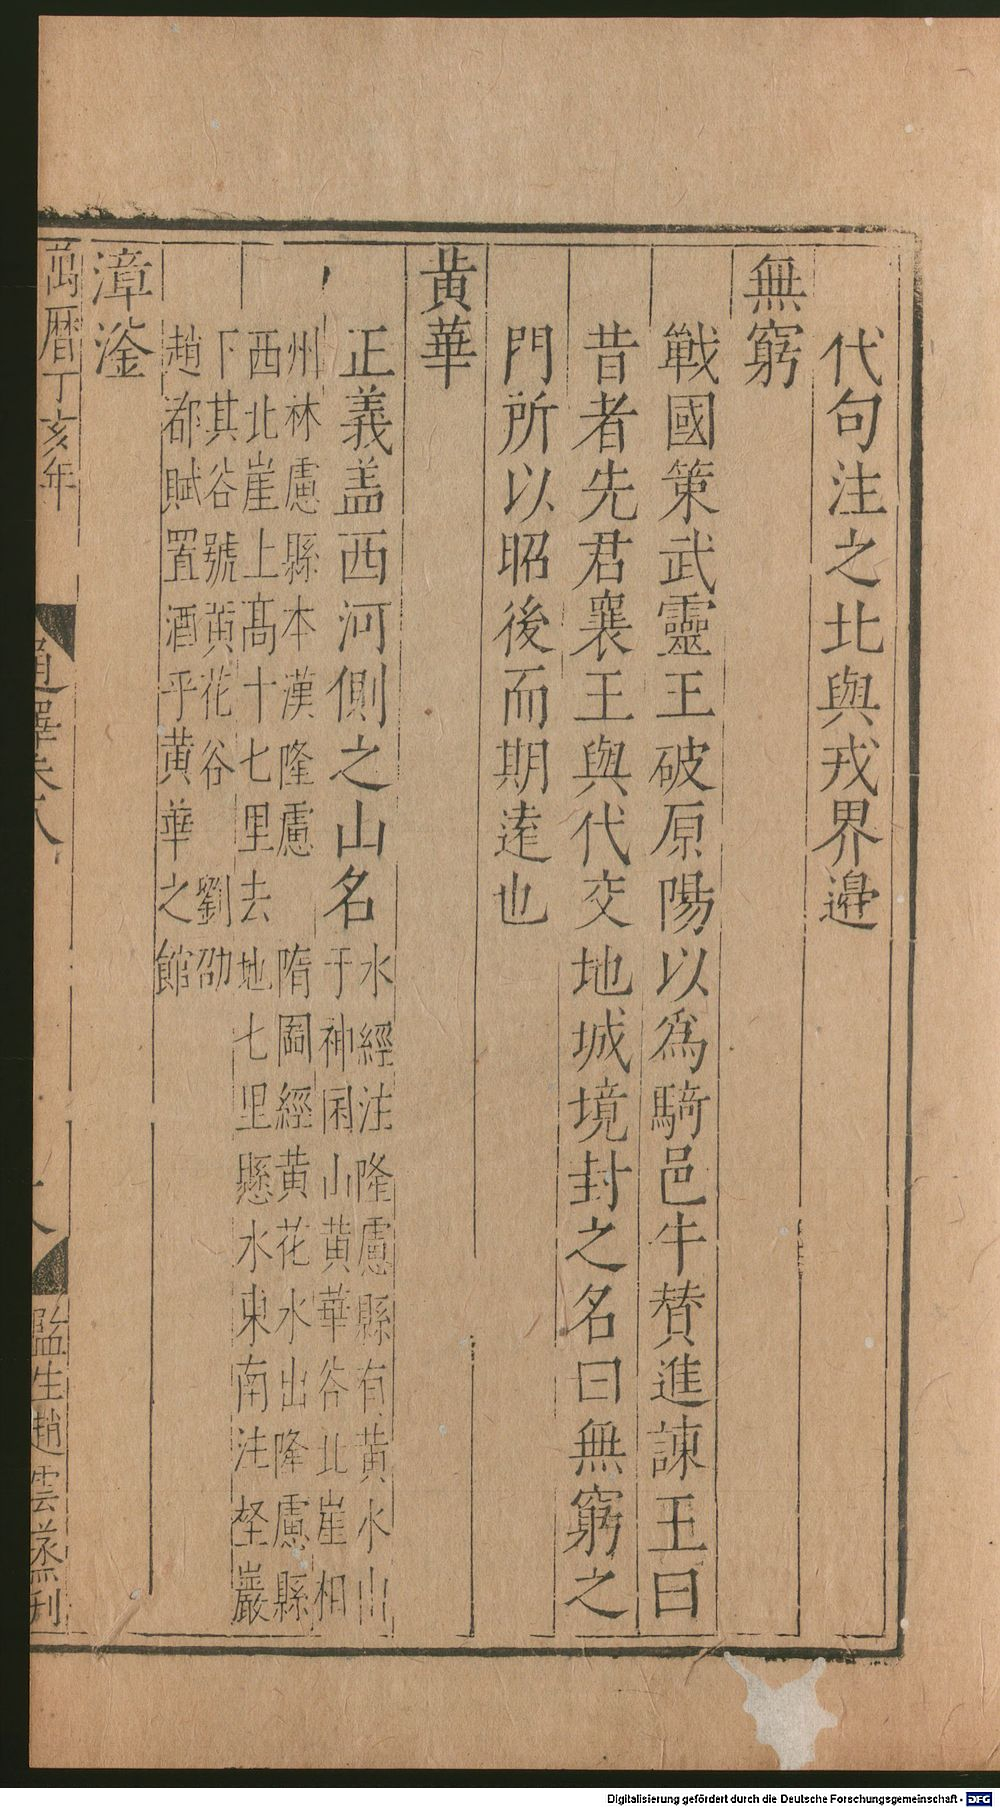 代句注之北與戎界邉
無窮
戰國策武靈王破原陽以爲騎邑牛賛進諫王曰
昔者先君襄王與代交地城境封之名曰無窮之
門所以昭後而期逺也
黄華
正義盖西河側之山名水經注隆慮縣有黄水出
于神囷山黄華谷北崖相
州林慮縣本漢隆慮 隋圖經黄花水出隆慮縣
西北崖上髙十七里去地七里懸水東南注壑巖
下其谷號黄花谷 劉劭
趙都賦置酒乎黄華之館
漳滏
萬暦丁亥年
通釋卷八
監生趙雲蒸刊
Digitalisierung gefördert durch die Deutsche Forschungsgemeinschaft - DFG